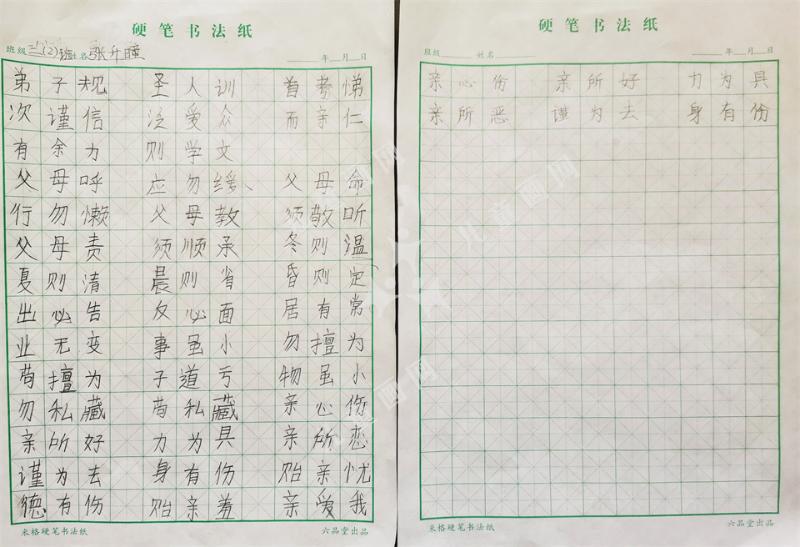 硬笔书法纸
班级二(2)班姓名张 年 月 日
弟子规 圣人训 首孝悌
次谨信 泛爱众 而亲仁
有余力 则学文
父母呼 应勿缓、 父母命
行勿懒 父母教 须敬听
父母责 须顺承 冬则温
夏则清 晨则省 昏则定
出必告 反必面 居有常
业无变 事虽小 勿擅为
苟擅为 子道亏 物虽小
勿私藏 苟私藏 亲心伤
亲所好 力为具 亲所恶
谨为去 身有伤 贻亲忧
德有伤 贻亲羞 亲爱我
米格硬笔书法纸 六品堂出品
硬笔书法纸
班级 姓名 年 月 日
亲心伤 亲所好 力为具
亲所恶 谨为去 身有伤
米格硬笔书法纸 六品堂出品